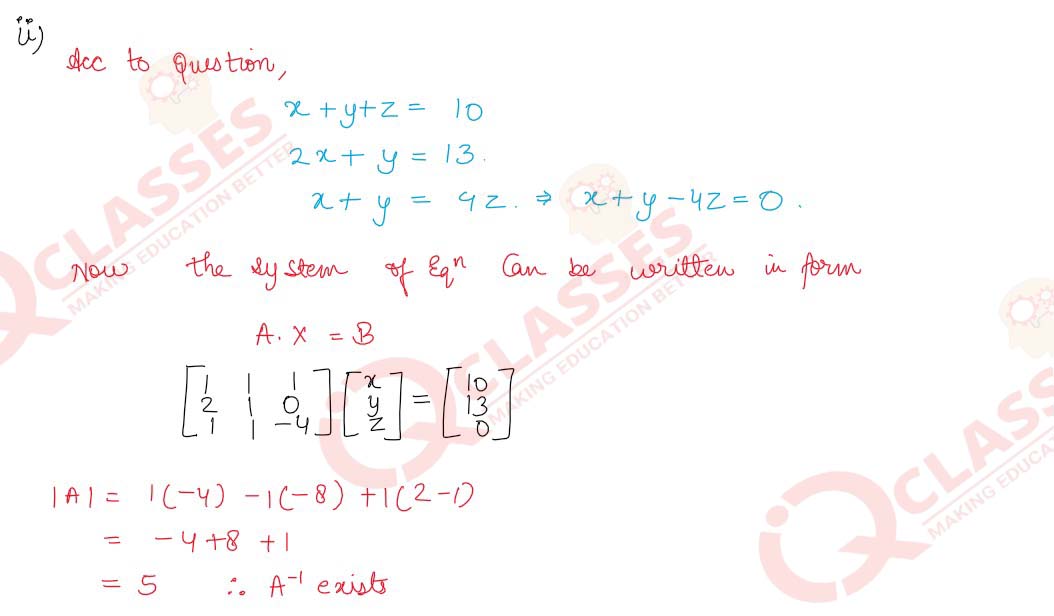 ii)
Acc to Question,
x + y + z = 10
2x + y = 13.
x + y = 4z. ⇒ x + y - 4z = 0.
Now the system of Eqn Can be written in form
A. X = B
[1 1 1] [x] = [10]
[2 1 0] [y] [13]
[1 1 -4] [z] [0]
|A| = 1(-4) -1(-8) +1(2-1)
= -4+8 +1
= 5 ∴ A⁻¹ exists
QCLASSES
MAKING EDUCATION BETTER
QCLASSES
MAKING EDUCATION BETTER
QCLASSES
MAKING EDUCA